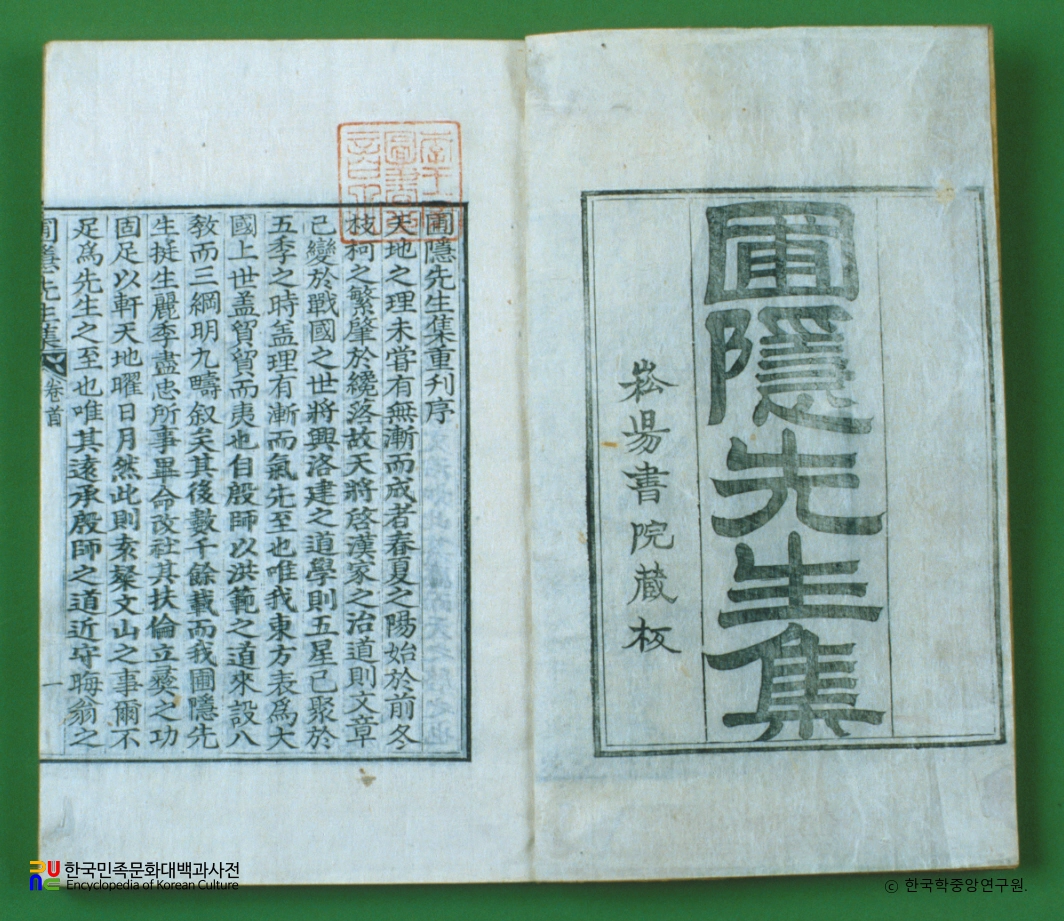 圃隱先生集
崧陽書院蔵板
圃隱先生集重刋序
天地之理未嘗有無漸而成者春夏之陽始於前冬
枝柯之繁肇於纔落故天將啓漢家之治道則文章
已變於戰國之世將興洛建之道學則五星已聚於
五季之時盖理有漸而氣先至也唯我東方表爲大
國上世盖貿貿而夷也自殷師以洪範之道來設八
敎而三綱明九疇叙矣其後數千餘載而我圃隱先
生挺生麗季盡忠所事畢命改社其扶倫立彛之功
固足以軒天地曜日月然此則索粲文山之事爾不
足爲先生之至也唯其遠承殷師之道近守晦翁之
圃隱先生集
卷首
一
한국민족문화대백과사전
Encyclopedia of Korean Culture
© 한국학중앙연구원.